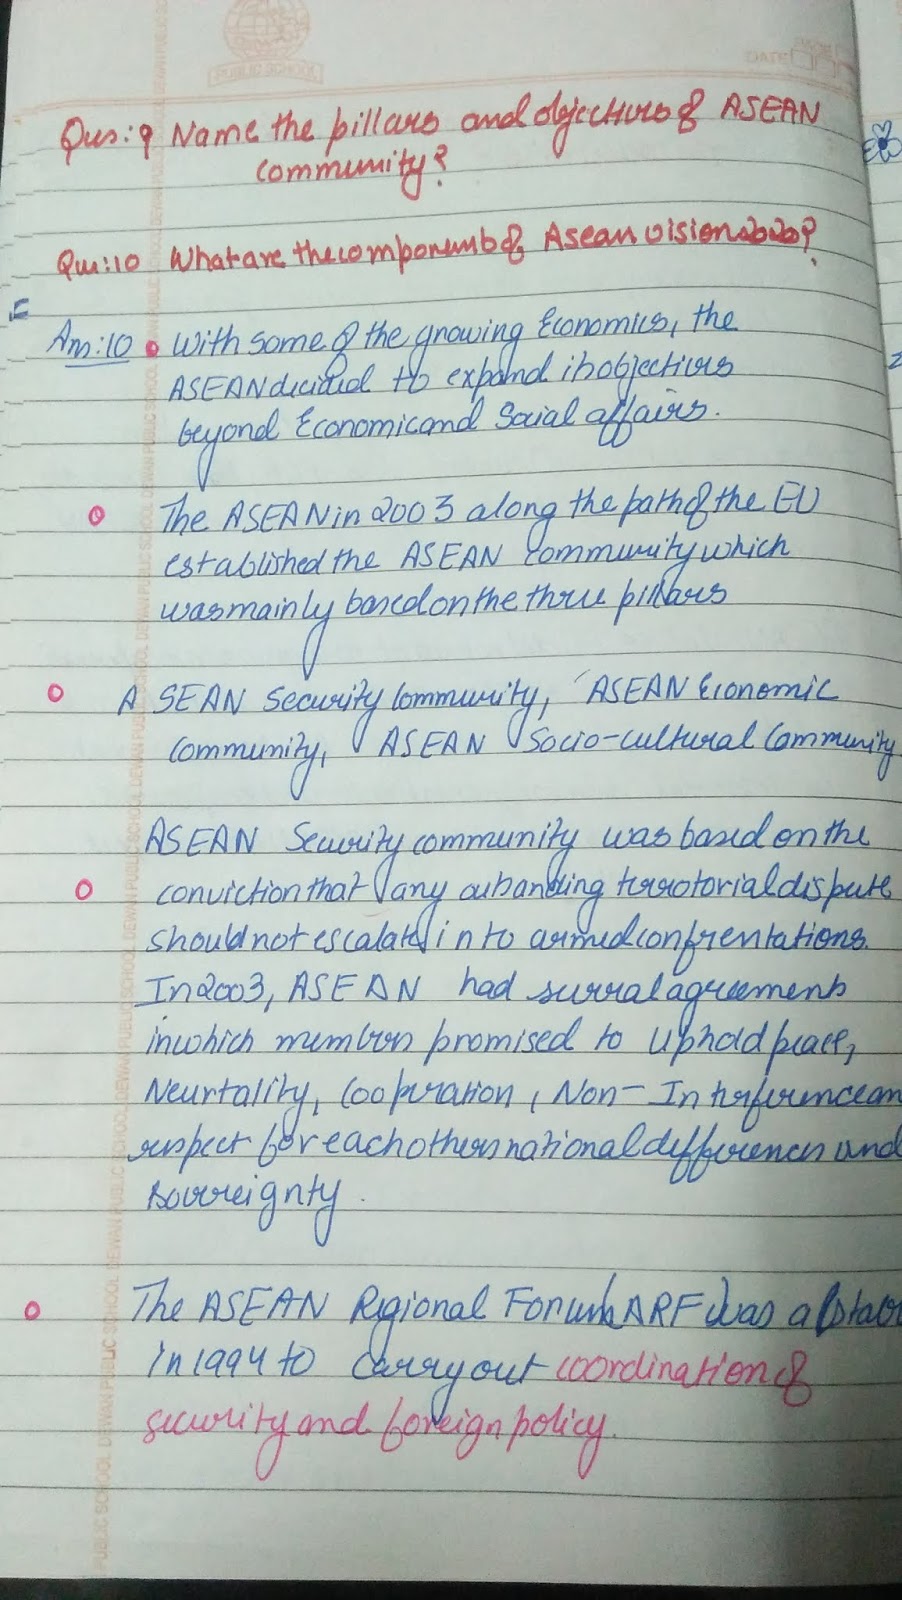 PUBLIC SCHOOL
DATE
Qus:9 Name the pillars and objectives of ASEAN
community?
Qus:10 What are the components of Asean vision 2020?
Ans:10 • With some of the growing Economics, the
ASEAN decided to expand its objectives
beyond Economic and Social affairs.
The ASEAN in 2003 along the path of the EU
established the ASEAN Community which
was mainly based on the three pillars
ASEAN Security Community, ASEAN Economic
Community, ASEAN Socio-cultural Community
ASEAN Security community was based on the
conviction that any territorial dispute
should not escalated into armed confrentations.
In 2003, ASEAN had several agreements
in which members promised to uphold peace,
Neurtality, Cooperation, Non-Interference an
respect for each others national differences and
sovereignty.
The ASEAN Regional Forum ARF was
in 1994 to carry out coordination of
security and foreign policy.
DEWAN PUBLIC SCHOOL DEWAN PUBLIC SCHOOL DEWAN PUBLIC SCHOOL